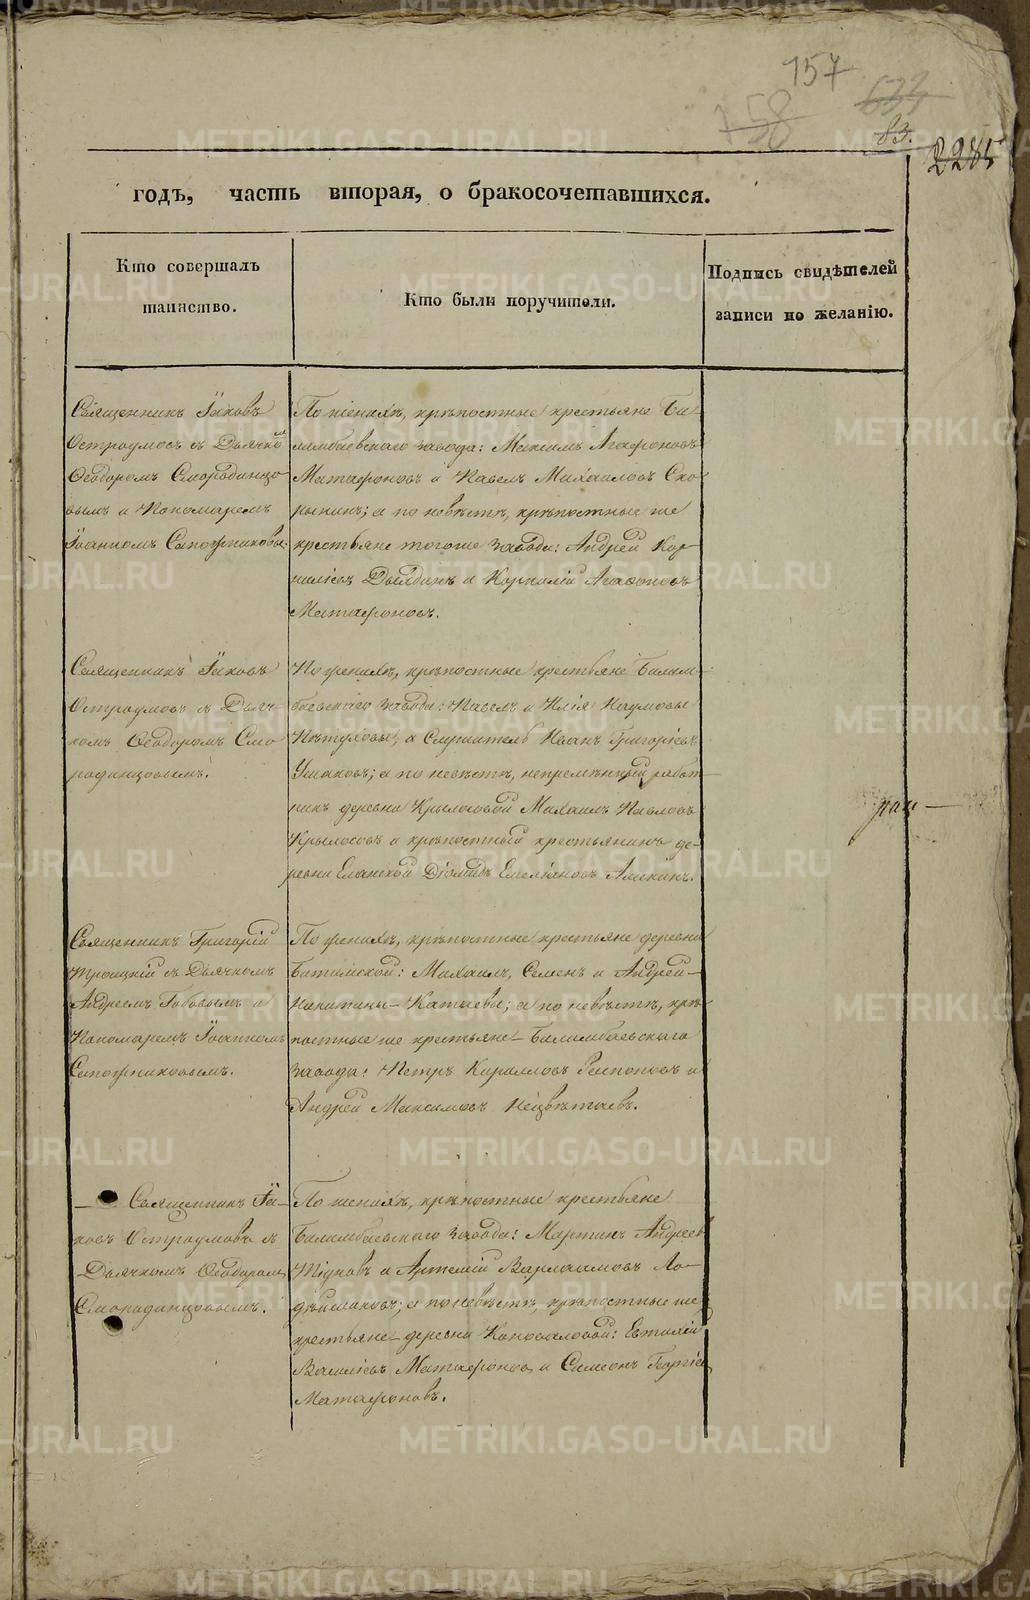 157
158
633
83.
2285
годъ, часть вторая, о бракосочетавшихся.
Кто совершалъ
таинство.
Кто были поручители.
Подпись свидѣтелей
записи по желанію.
Священникъ Іаковъ
Остроумовъ съ Дьячкомъ
Ѳеодоромъ Смородинцо
вымъ и Пономаремъ
Іоанномъ Сапожниковы
По женихѣ, крѣпостные крестьяне Би-
лимбаевскаго завода: Максимъ Агафоновъ
Матафоновъ и Павелъ Михаиловъ Ско
рынинъ; а по невѣстѣ, крѣпостные же
крестьяне тогоже завода: Андрей Кор-
ниліевъ Дылдинъ и Корнилій Агафоновъ
Матафоновъ.
Священникъ Іаковъ
Остроумовъ съ Дьяч-
комъ Ѳеодоромъ Смо
родинцовымъ.
По женихѣ, крѣпостные крестьяне Билим-
баевскаго завода: Павелъ и Илія Наумовы
Пѣтуховы, а Служитель Иванъ Григоріевъ
Ушаковъ; а по невѣстѣ, непремѣнный работ-
никъ деревни Крылосовой Михаилъ Павловъ
Крылосовъ и крѣпостный крестьянинъ де-
ревни Еланской Діомидъ Емеліяновъ Аликинъ.
Священникъ Григорій
Троицкій съ Дьячкомъ
Андреемъ Бабовымъ и
Пономаремъ Іоанномъ
Сапожниковымъ.
По женихѣ, крѣпостные крестьяне деревни
Битимской: Михаилъ, Семенъ и Андрей
Никитины Катаевы; а по невѣстѣ, крѣ
постные же крестьяне Билимбаевскаго
завода: Петръ Кирилловъ Распоповъ и
Андрей Максимовъ Нецвѣтаевъ.
Священникъ Іа-
ковъ Остроумовъ съ
Дьячкомъ Ѳеодоромъ
Смородинцовымъ.
По женихѣ, крѣпостные крестьяне
Билимбаевскаго завода: Мартинъ Андреевъ
Тіуновъ и Артемій Варлаамовъ Ло-
дейщиковъ; а по невѣстѣ, крѣпостные же
крестьяне деревни Коноваловой: Евтихій
Васильевъ Матафоновъ и Симеонъ Георгіев
Матафоновъ.
METRIKI.GASO-URAL.RU